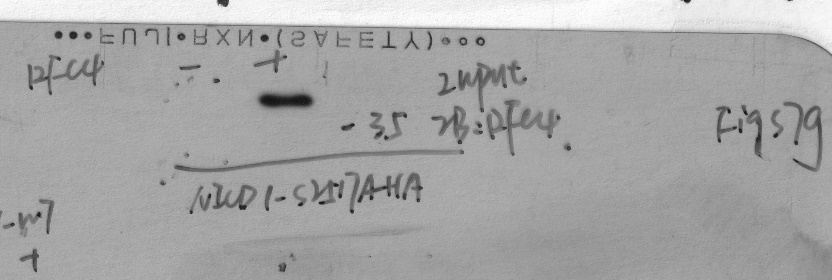 •••FUJI•RXN•(SAFETY)•••
RFC4 - +
Input
- 35 IB: RFC4
Fig S7g
NICD1-S2517A-HA
+